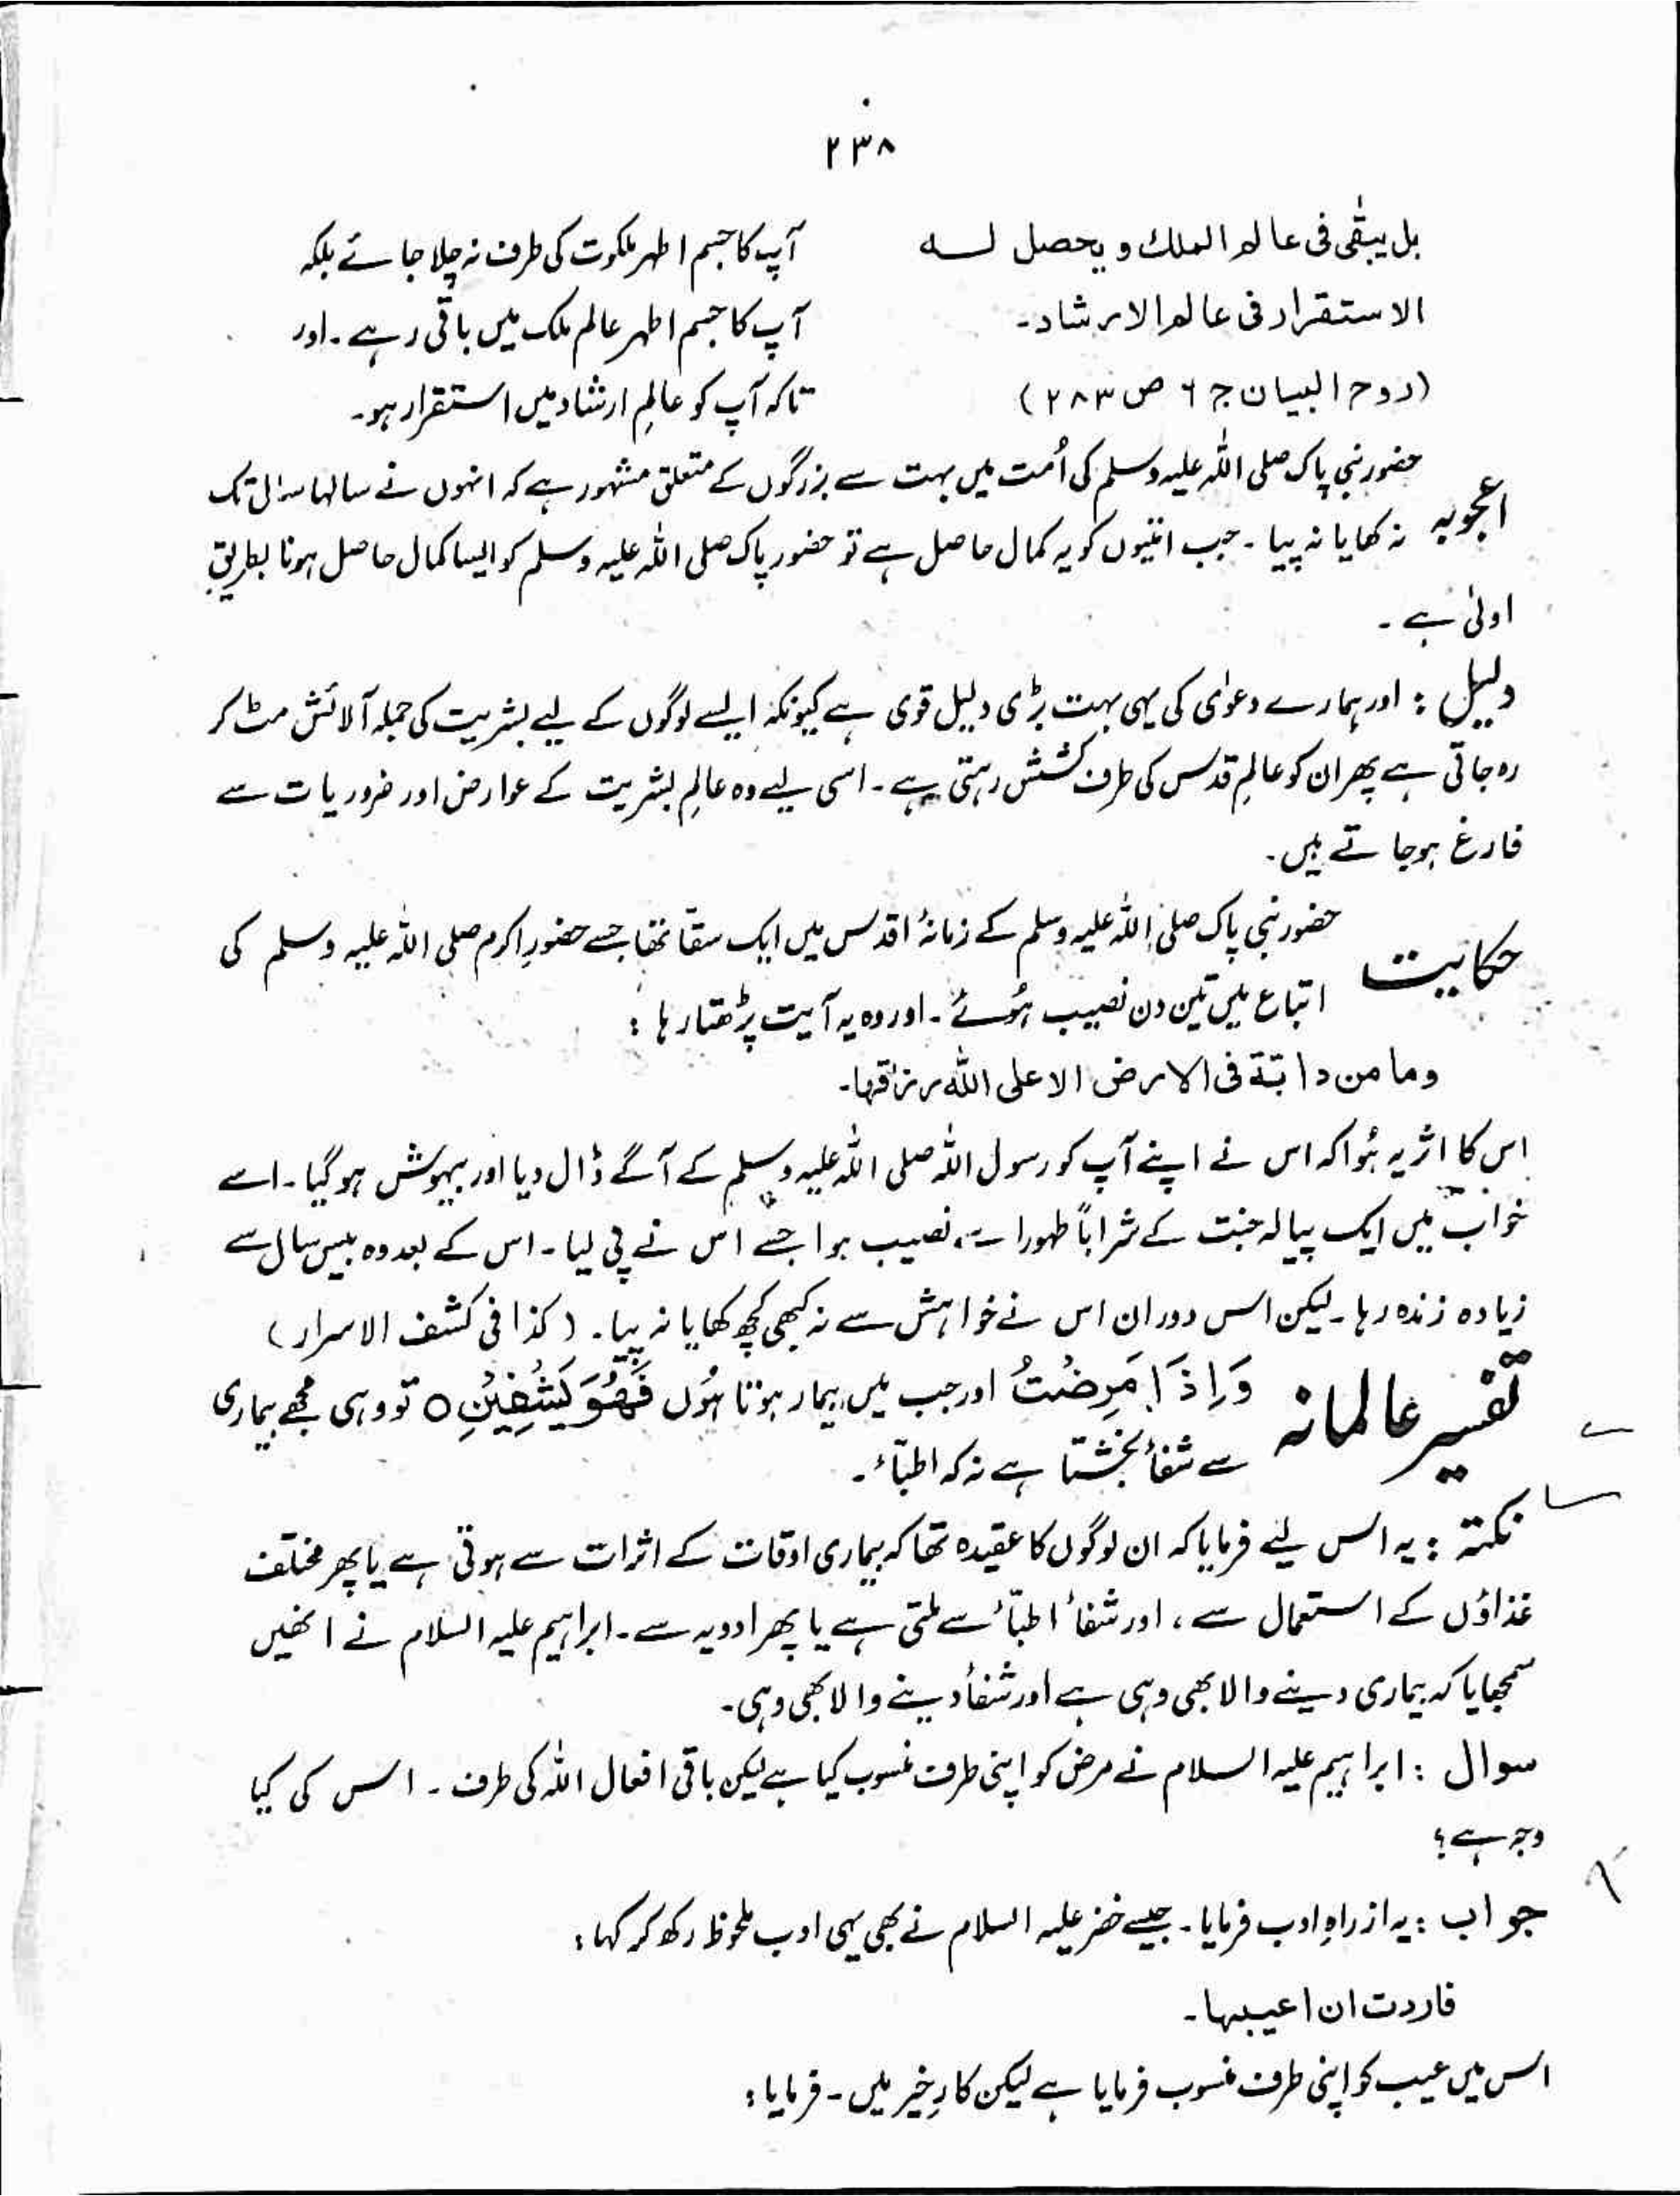 ۲۳۸
بل یبقٰی فی عالم الملک و یحصل لہ
الاستقرار فی عالم الارشاد۔
(روح البیان ج ۶ ص ۲۸۳)
آپ کا جسم اطہر ملکوت کی طرف نہ چلا جائے بلکہ
آپ کا جسم اطہر عالم ملک میں باقی رہے۔ اور
تاکہ آپ کو عالمِ ارشاد میں استقرار ہو۔
حضور نبی پاک صلی اللہ علیہ وسلم کی اُمت میں بہت سے بزرگوں کے متعلق مشہور ہے کہ انہوں نے سالہا سال تک
اعجوبہ نہ کھایا نہ پیا۔ جب امتیوں کو یہ کمال حاصل ہے تو حضور پاک صلی اللہ علیہ وسلم کو ایسا کمال حاصل ہونا بطریقِ
اولیٰ ہے۔
دلیل : اور ہمارے دعوٰی کی یہی بہت بڑی دلیل قوی ہے کیونکہ ایسے لوگوں کے لیے بشریت کی جملہ آلائش مٹ کر
رہ جاتی ہے پھر ان کو عالمِ قدس کی طرف کشش رہتی ہے۔ اسی لیے وہ عالمِ بشریت کے عوارض اور ضروریات سے
فارغ ہوجاتے ہیں۔
حضور نبی پاک صلی اللہ علیہ وسلم کے زمانۂ اقدس میں ایک سقّا تھا جسے حضورِ اکرم صلی اللہ علیہ وسلم کی
حکایت اتباع میں تین دن نصیب ہُوئے۔ اور وہ یہ آیت پڑھتا رہا :
وما من دابّۃ فی الارض الا علی اللہ رزقہا۔
اس کا اثر یہ ہُوا کہ اس نے اپنے آپ کو رسول اللہ صلی اللہ علیہ وسلم کے آگے ڈال دیا اور بیہوش ہوگیا۔ اسے
خواب میں ایک پیالہ جنت کے شراباً طہورا سے نصیب ہوا جسے اس نے پی لیا۔ اس کے بعد وہ بیس سال سے
زیادہ زندہ رہا۔ لیکن اس دوران اس نے خواہش سے نہ کبھی کچھ کھایا نہ پیا۔ (کذا فی کشف الاسرار)
تفسیر عالمانہ وَاِذَا مَرِضْتُ اور جب میں بیمار ہوتا ہُوں فَھُوَ یَشْفِیْنِ ۝ تو وہی مجھے بیماری
سے شفأ بخشتا ہے نہ کہ اطبّأ۔
نکتہ : یہ اس لیے فرمایا کہ ان لوگوں کا عقیدہ تھا کہ بیماری اوقات کے اثرات سے ہوتی ہے یا پھر مختلف
غذاؤں کے استعمال سے، اور شفأ اطبّأ سے ملتی ہے یا پھر ادویہ سے۔ ابراہیم علیہ السلام نے انھیں
سمجھایا کہ بیماری دینے والا بھی وہی ہے اور شفأ دینے والا بھی وہی۔
سوال : ابراہیم علیہ السلام نے مرض کو اپنی طرف منسوب کیا ہے لیکن باقی افعال اللہ کی طرف۔ اس کی کیا
وجہ ہے؟
جواب : یہ از راہِ ادب فرمایا۔ جیسے خضر علیہ السلام نے بھی یہی ادب ملحوظ رکھ کر کہا :
فاردت ان اعیبہا۔
اس میں عیب کو اپنی طرف منسوب فرمایا ہے لیکن کارِ خیر میں۔ فرمایا :